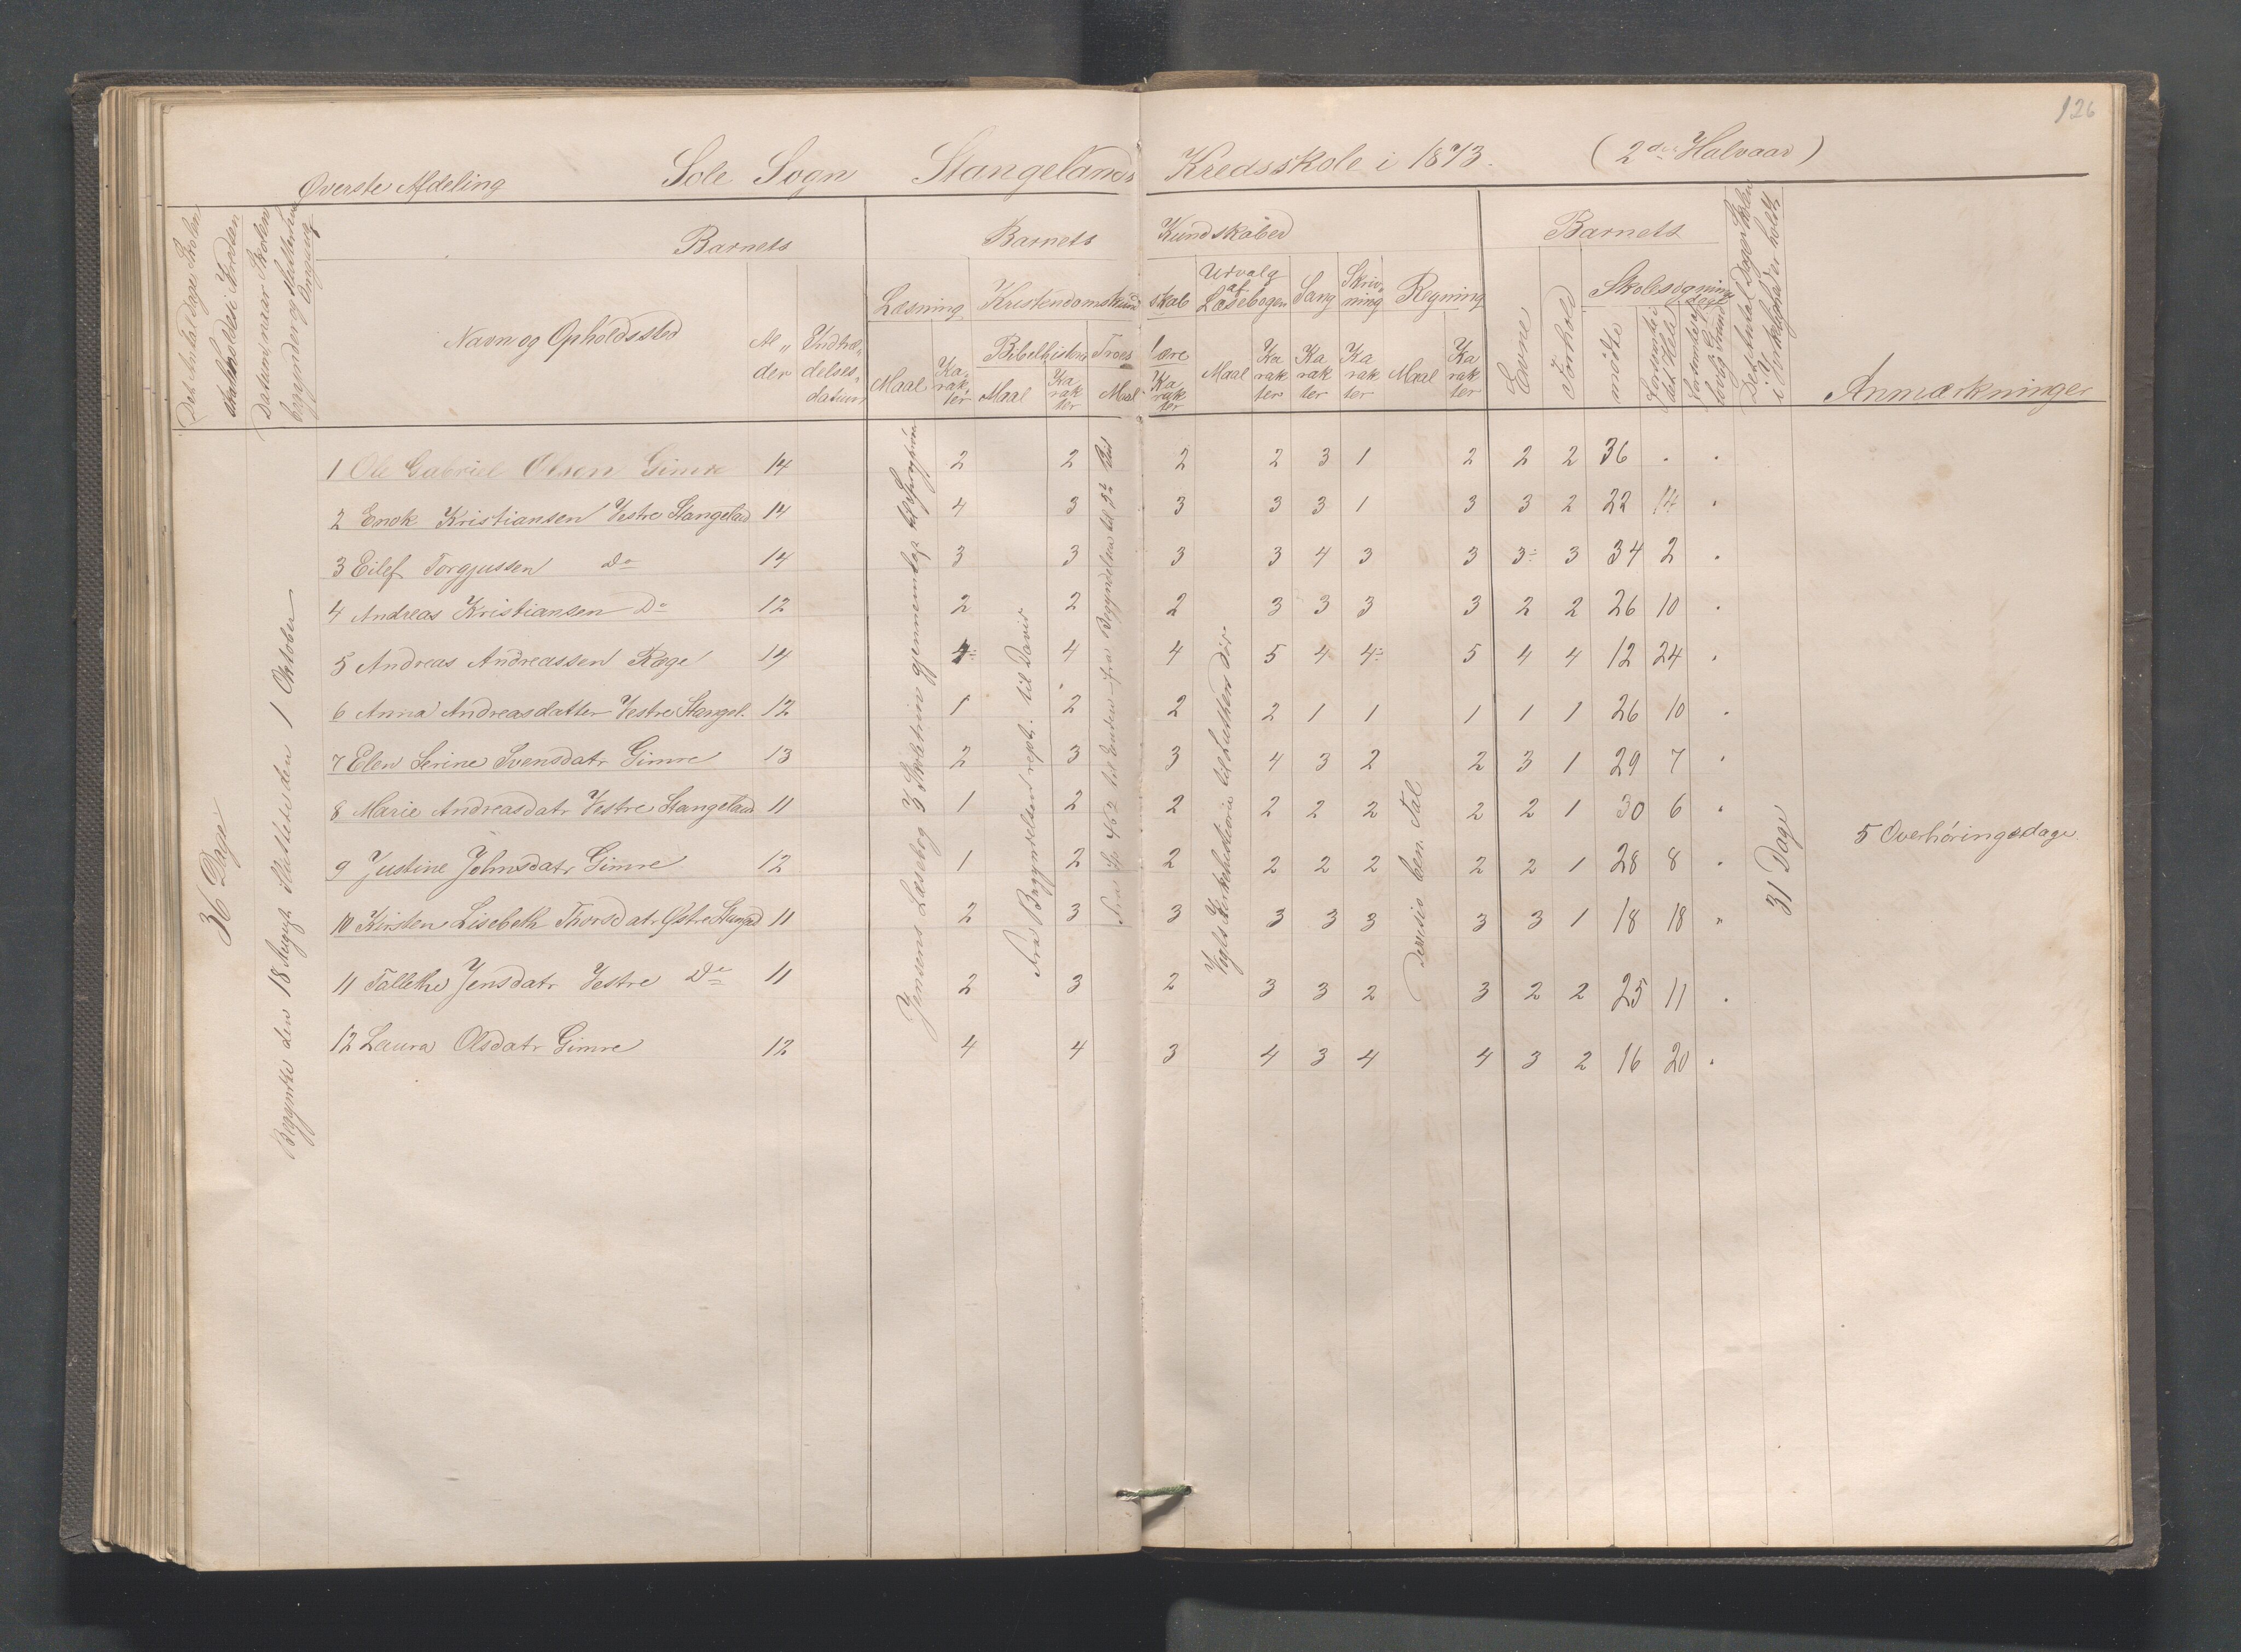 126
Overste Afdeling Sole Sogn Stangelands Kredsskole i 1873. (2det Halvaar)
Det Antal Dage Skolen skal holdes i Kredsen
Datum, naar Skolen begynder og slutter hver Omgang
Barnets
Navn og Opholdssted
Al„der
Indtræ„delses„datum
Barnets Kundskaber
Læsning
Maal
Karakter
Kristendomskundskab
Bibelhistorie
Maal
Karakter
Troeslære
Maal
Karakter
Udvalg af Læsebogen
Maal
Karakter
Sang
Karakter
Skrivning
Karakter
Regning
Maal
Karakter
Barnets
Evne
Forhold
Skolesøgning
mødte
forsømte det Hele
forsømte af lovlig Grund
Det Antal Dage Skolen i Virkelighed er holdt
Anmærkninger
36 Dage
Begyndte den 18 August sluttede den 1 Oktober
Jensens Læsebog 3 Skoletrin gjennemlæst til
Fra Begyndelsen rept. til David
Vogts Kirkehistorie til Luthers Død
Decisio ben. Tal
31 Dage
5 Overhøringsdage.
1 Ole Gabriel Olsen Gimre 14 2 2 2 2 3 1 2 2 2 36 . .
2 Enok Kristiansen Vestre Stangeland 14 4 3 3 3 3 1 3 3 2 22 14 .
3 Eilef Torgjussen Do 14 3 3 3 3 4 3 3 3÷ 3 34 2 .
4 Andreas Kristiansen Do 12 2 2 2 3 3 3 3 2 2 26 10 .
5 Andreas Andreassen Røge 14 4÷ 4 4 5 4 4÷ 5 4 4 12 24 .
6 Anna Andreasdatter Vestre Stangel. 12 1 2 2 2 1 1 1 1 1 26 10 .
7 Elen Serine Svensdatr Gimre 13 2 3 3 4 3 2 2 3 1 29 7 .
8 Marie Andreasdatr Vestre Stangeland 11 1 2 2 2 2 2 2 2 1 30 6 .
9 Justine Johnsdatr Gimre 12 1 2 2 2 2 2 2 2 1 28 8 .
10 Kirsten Lisebeth Thorsdatr Østre Stangld 11 2 3 3 3 3 3 3 3 1 18 18 .
11 Tallethe Jensdatr Vestre Do 11 2 3 2 3 3 2 3 2 2 25 11 .
12 Laura Olsdatr Gimre 12 4 4 3 4 3 4 4 3 2 16 20 .